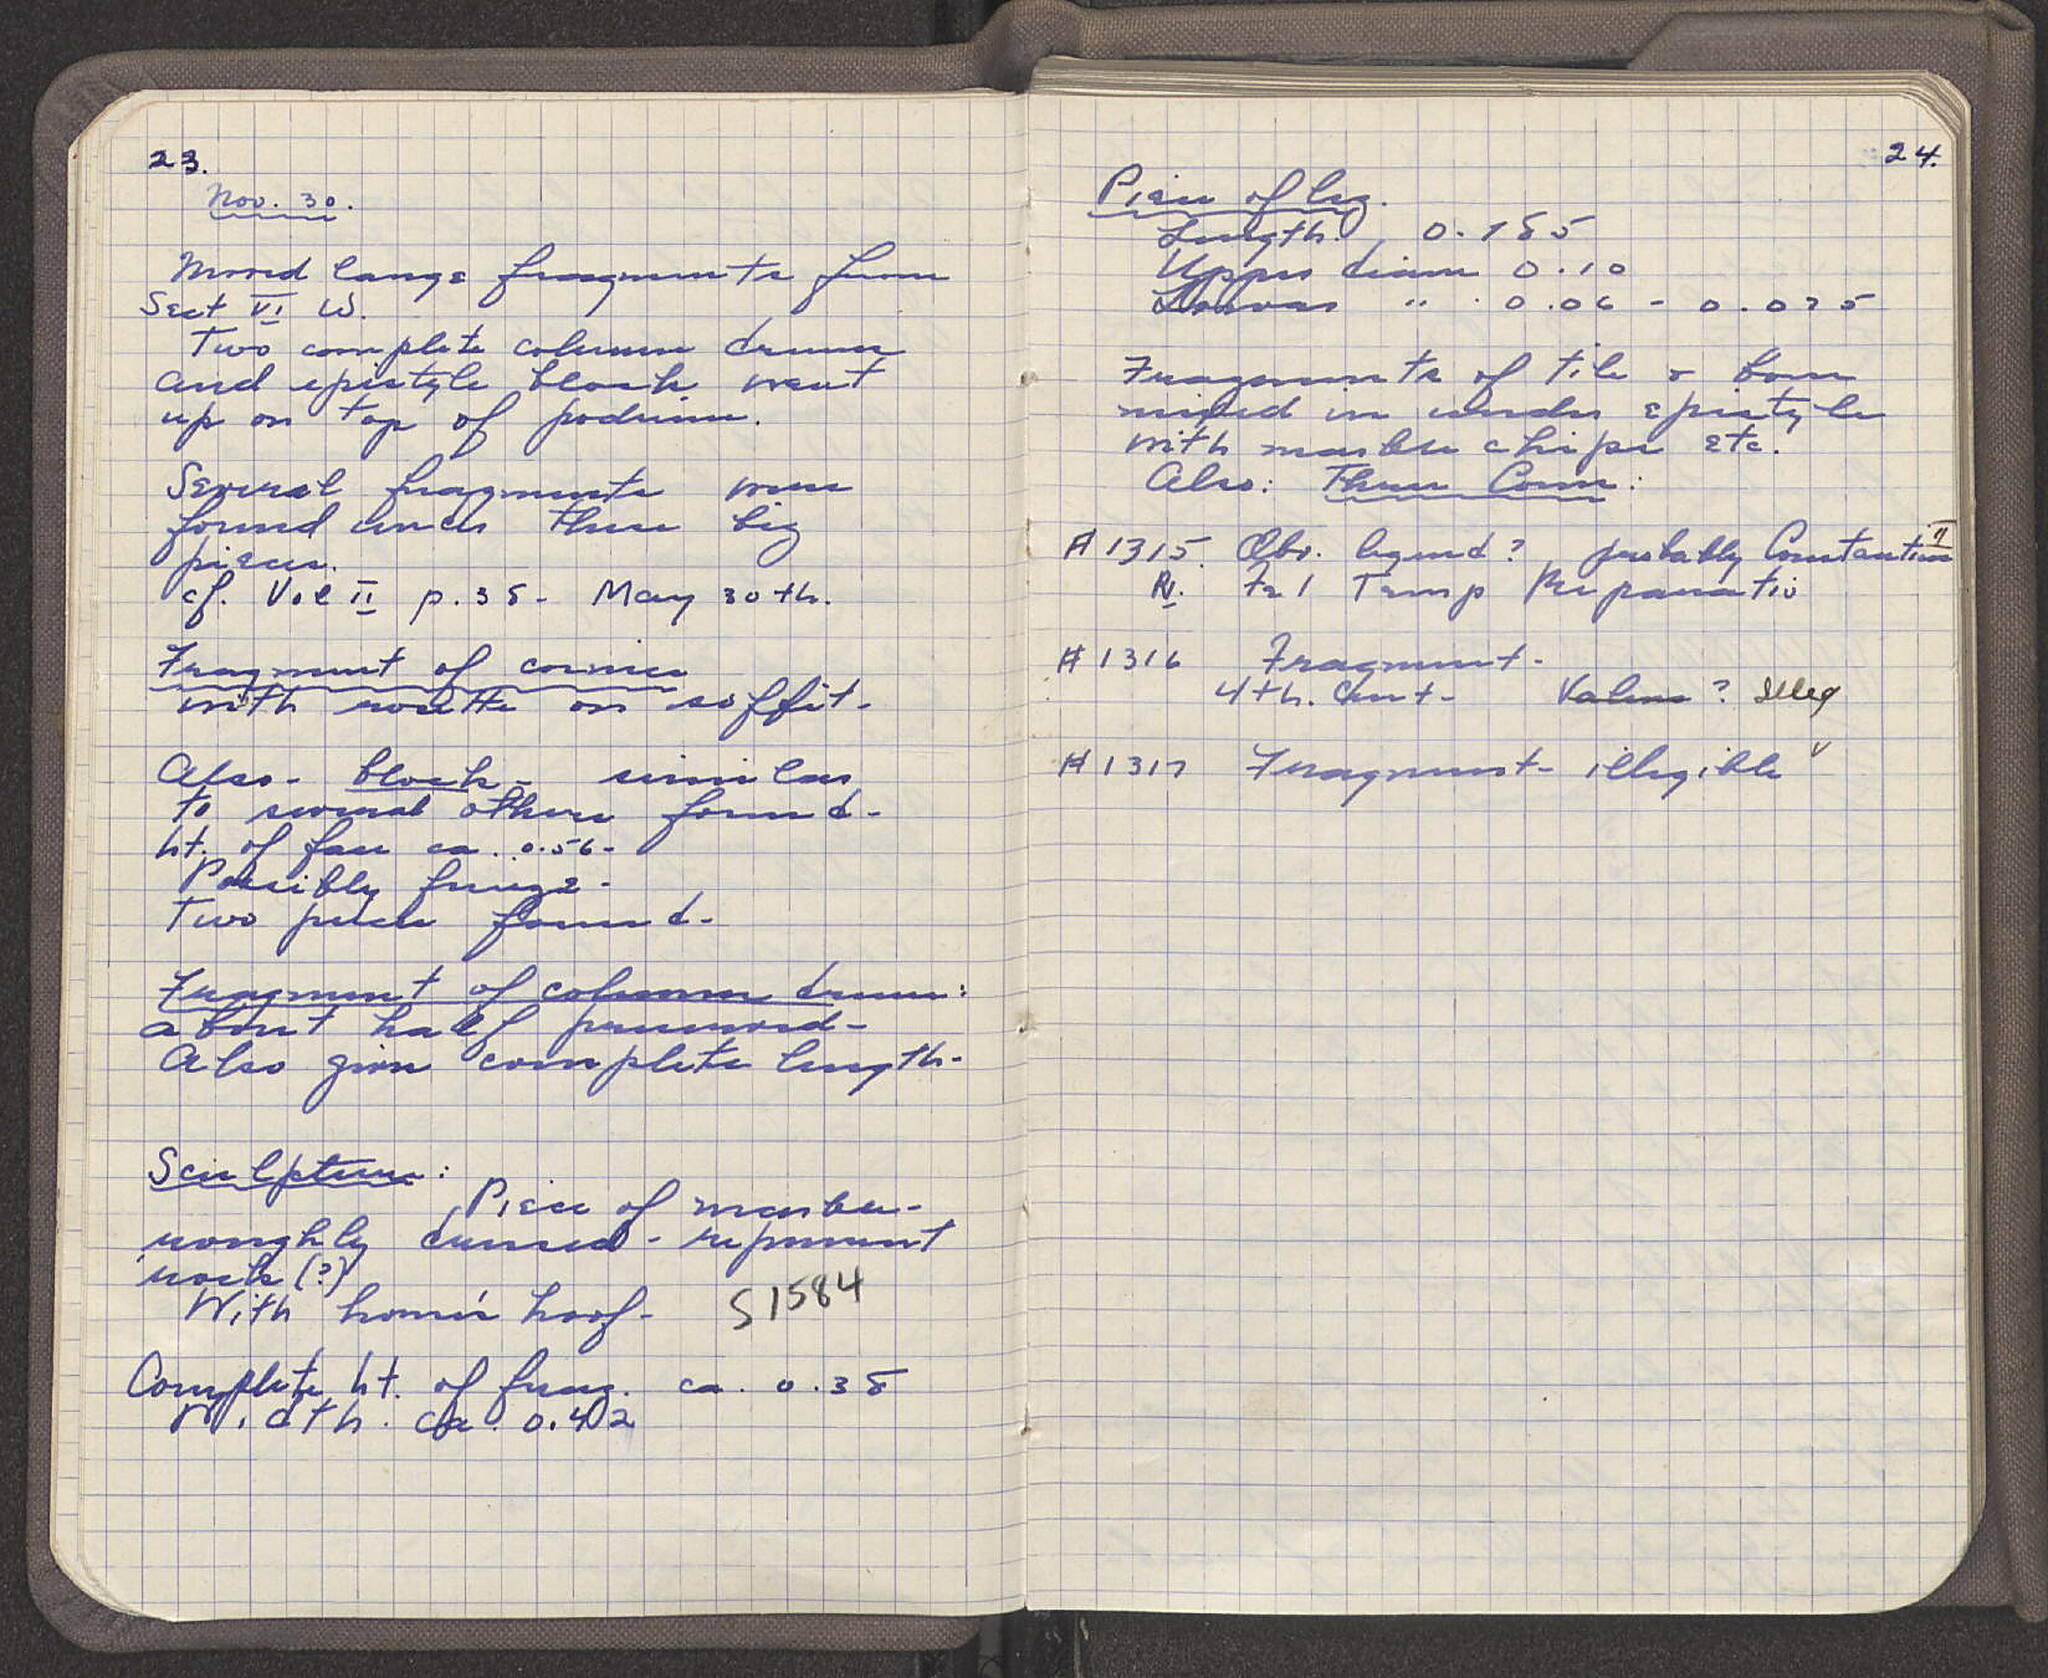 23.
Nov. 30.
Moved large fragments from
Sect VI W.
Two complete column drums
and epistyle block went
up on top of podium.
Several fragments were
found under these big
pieces.
cf. Vol II p. 38 - May 30th.
Fragment of cornice
with rosette on soffit -
Also - block - similar
to several others found -
ht. of face ca. 0.56 -
Possibly frieze -
Two pieces found -
Fragment of column drum:
about half preserved -
Also gives complete length -
Sculpture:
Piece of marble -
roughly dressed - represent
rock (?)
With horse's hoof - S 1584
Complete ht. of frag. ca. 0.38
Width. ca. 0.42
24.
Piece of leg.
Length. 0.185
Upper diam 0.10
Lower " . 0.06 - 0.075
Fragments of tile & bone
mixed in under epistyle
with marble chips etc.
Also: Three Coins:
#1315. Obv. legend? probably Constantius II
Rv. Fel Temp Reparatio
#1316 Fragment -
4th. Cent - Valens ? Illeg
#1317 Fragment - illegible